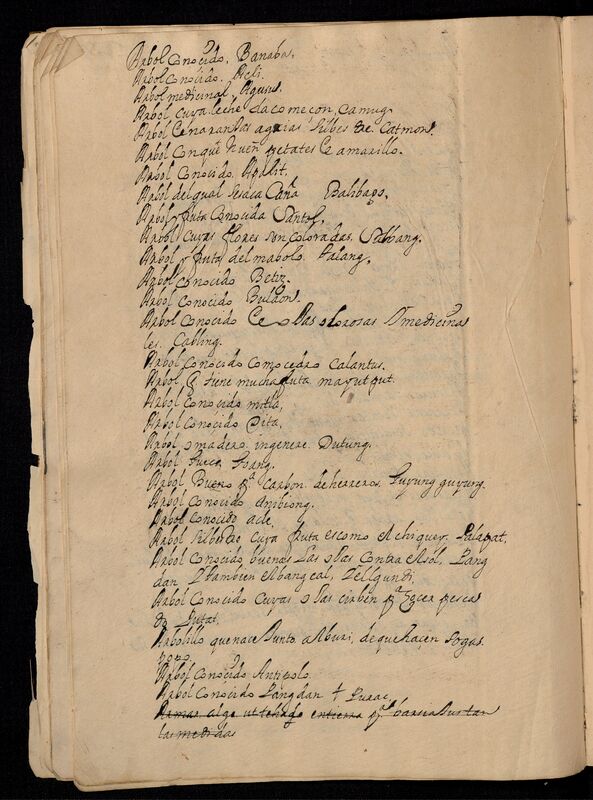 Arbol Conocido. Banaba.
Arbol conocido. Acli.
Arbol medicinal, Agusus.
Arbol cuya leche da comecon, Camug.
Arbol Ce naranjas agrias silbes de Catmon.
Arbol con que tiñen petates Ce amarillo.
Arbol Conocido. Apalit.
Arbol del qual Sesaca Caña Balibago.
Arbol y fruta Conocida Santol.
Arbol Cuyas flores son coloradas. Dabdang.
Arbol y fruta del mabolo. talang.
Arbol conocido Betiz.
Arbol Conocido Bulaon.
Arbol Conocido Ce ojas olorosas D medicina
les. Cabling.
Arbol Conocido como cedro Calantas.
Arbol q tiene mucha fruta mayutput.
Arbol Conocido mitla,
Arbol conocido Dita,
Arbol o madero ingenere Dutung.
Arbol
Arbol Bueno pa Carbon de herreros. Guyung guyung.
Arbol Conocido anibiong.
Arbol Conocido acle,
Arbol silbestre Cuya fruta es como el chiquey. Palapat.
Arbol Conocido buenas Las ojas Contra el sol, Pang
dan D tambien el bangcal,
Arbol Conocido Cuyas ojas cirben pa haçer pesca
do
Arbolillo que nace Junto al buri de que haçen sogas.
Arbol Conocido Antipolo.
Arbol Conocido Pangdan
algo entierra pa
las medidas